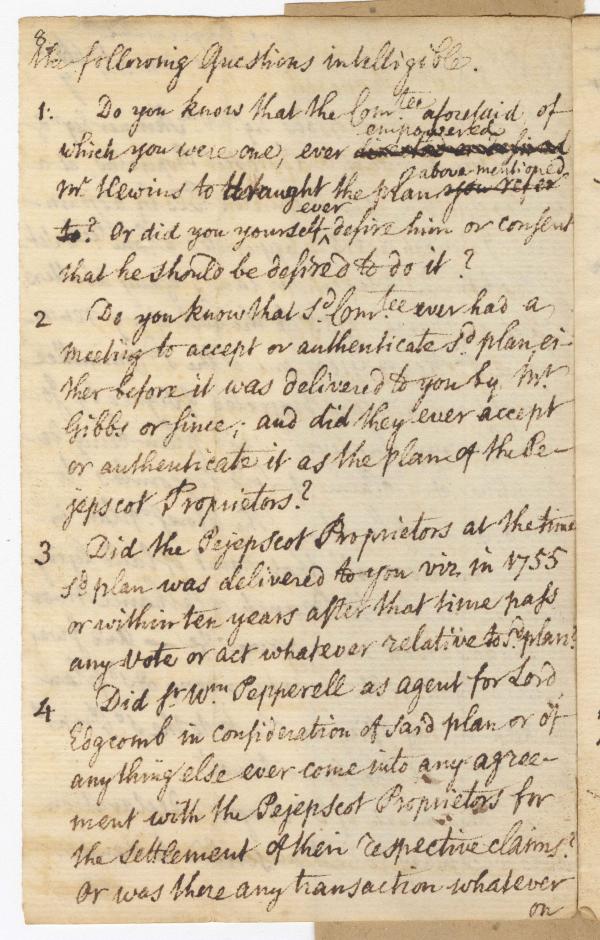 8
the following Questions intelligible.
1. Do you know that the Com.tee aforesaid, of
empowered
which you were one, ever
above mentioned
Mr. Hewins to the plan you refer
ever
to? Or did you yourself ^ desire him or consent
that he should be desired to do it?
2 Do you know that sd. Com.tee ever had a
meeting to accept or authenticate sd. plan, ei-
ther before it was delivered to you by Mr.
Gibbs or since; and did they ever accept
or authenticate it as the plan of the Pe-
jepscot Proprietors?
3 Did the Pejepscot Proprietors at the time
sd. plan was delivered to you viz. in 1755
or within ten years after that time pass
any Vote or act whatever relative to sd. plan?
4 Did Sr. Wm. Pepperell as agent for Lord
Edgcomb in consideration of said plan or of
any thing else ever come into any agree-
ment with the Pejepscot Proprietors for
the settlement of their respective claims?
Or was there any transaction whatever
on